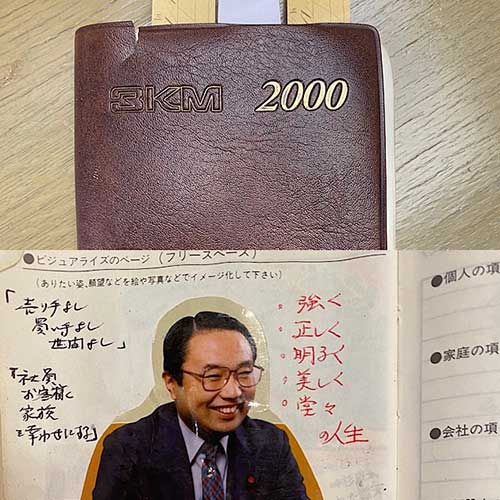 3KM 2000
●ビジュアライズのページ（フリースペース）
（ありたい姿、願望などを絵や写真などでイメージ化して下さい）
「売り手よし
買い手よし
世間よし」
『社員
お客様
家族
を幸わせにする』
○ 強く
○ 正しく
○ 明るく
○ 美しく
○ 堂々
の人生
●個人の項
●家庭の項
●会社の項